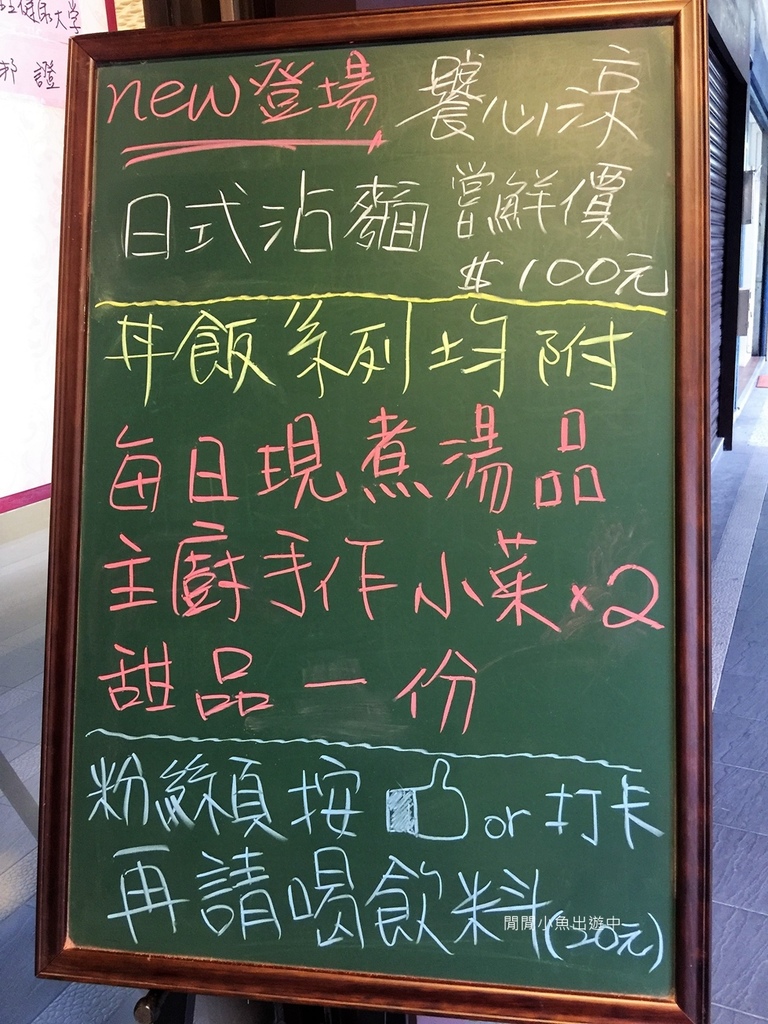 new登場 饗心涼
日式沾麵 嘗鮮價
$100元
丼飯系列均附
每日現煮湯品
主廚手作小菜×2
甜品一份
粉絲頁按 or 打卡
再請喝飲料(20元)
閒閒小魚出遊中